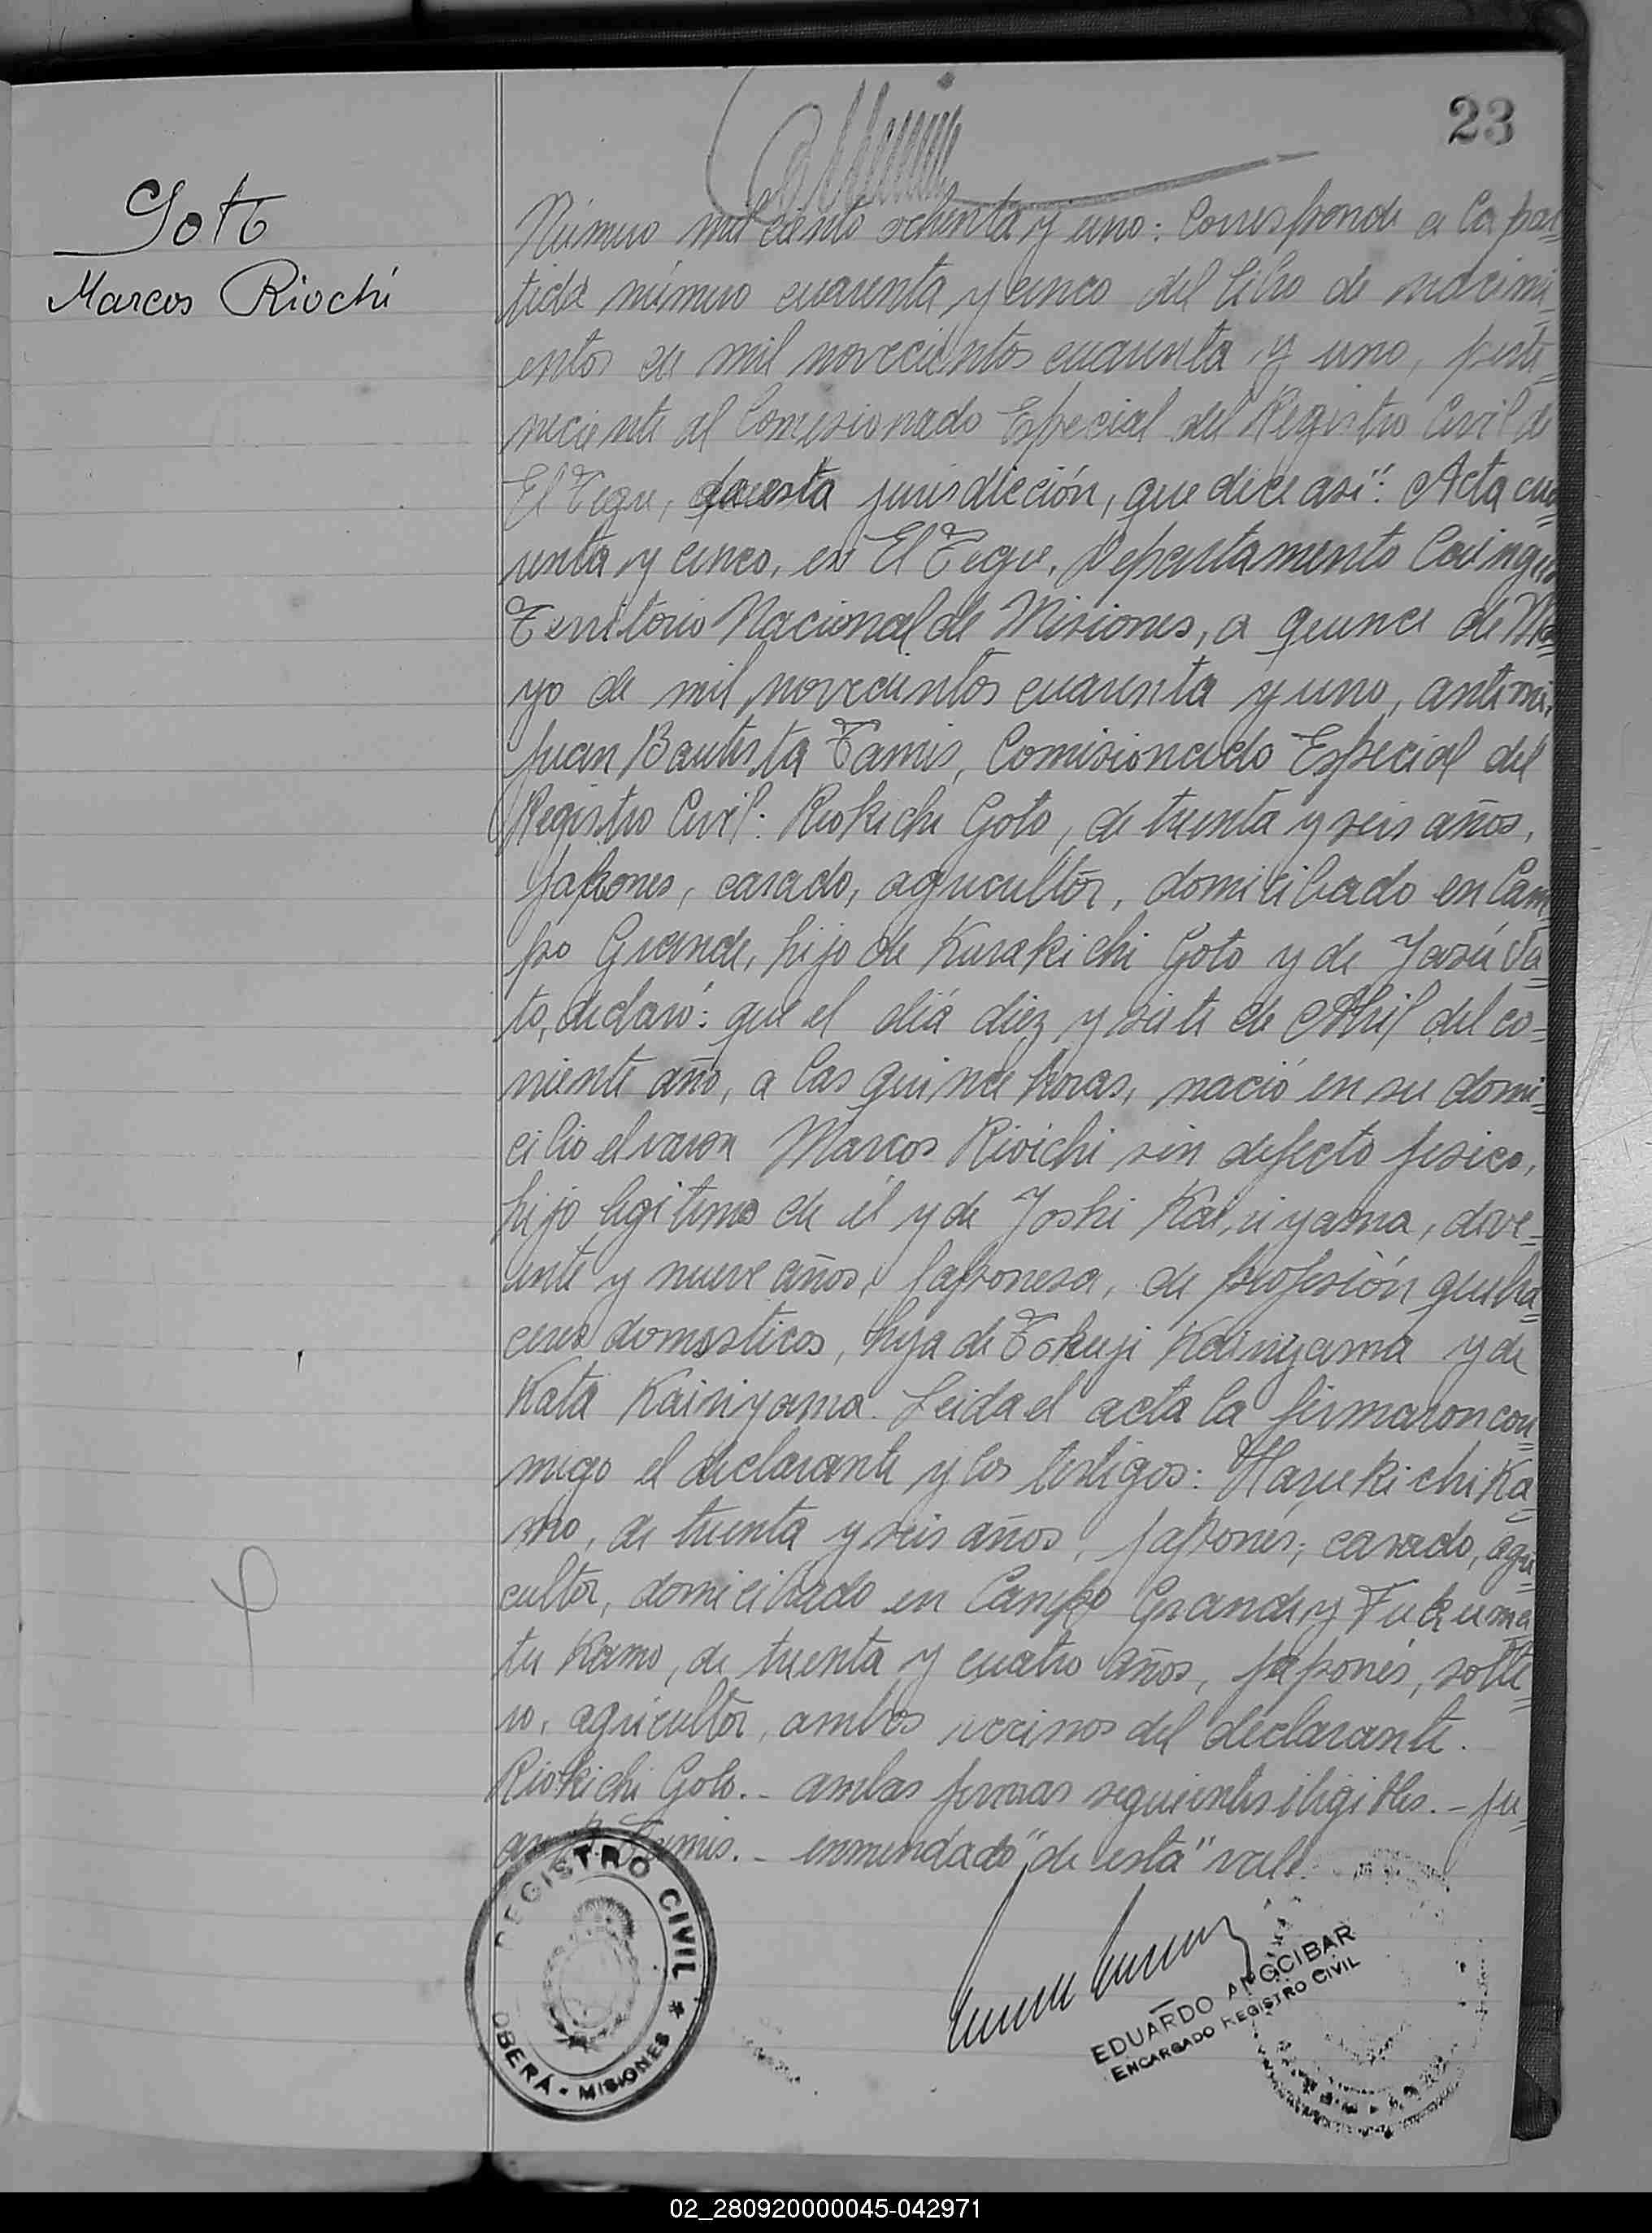 23
Goto
Marcos Riochi
Número mil ciento ochenta y uno: Corresponde a la par=
tida número cuarenta y cinco del libro de nacimi=
entos de mil novecientos cuarenta y uno, perte=
neciente al Comisionado Especial del Registro Civil de
El Tigre, de esta jurisdicción, que dice asi": Acta cua=
renta y cinco, en El Tigre, Departamento Cainguas
Territorio Nacional de Misiones, a quince de Ma=
yo de mil novecientos cuarenta y uno, ante mi,
Juan Bautista Tamis, Comisionado Especial del
Registro Civil: Riokichi Goto, de treinta y seis años,
Japones, casado, agricultor, domiciliado en Cam
po Grande, hijo de Kurakichi Goto y de Yasú Sa=
to, declaró: que el día diez y siete de Abril del co=
rriente año, a las quince horas, nació en su domi=
cilio el varon Marcos Rioichi sin defecto fisico,
hijo legitimo de él y de Yoshi Kairiyama, de ve=
inte y nueve años, Japonesa, de profesión queha=
ceres domesticos, hija de Tokuji Kairiyama y de
Kata Kairiyama. Leida el acta la firmaron con=
migo el declarante y los testigos: Harukichi Ka=
mo, de treinta y seis años, japonés, casado, agri=
cultor, domiciliado en Campo Grande y Fukuma
tu Kamo, de treinta y cuatro años, japonés, solte=
ro, agricultor, ambos vecinos del declarante.
Riokichi Goto.- ambas firmas siguientes iligibles.- Ju=
an B. Tamis.- enmendado "de esta" vale.
REGISTRO CIVIL
OBERÁ - MISIONES
EDUARDO ANGCIBAR
ENCARGADO REGISTRO CIVIL
02_280920000045-042971